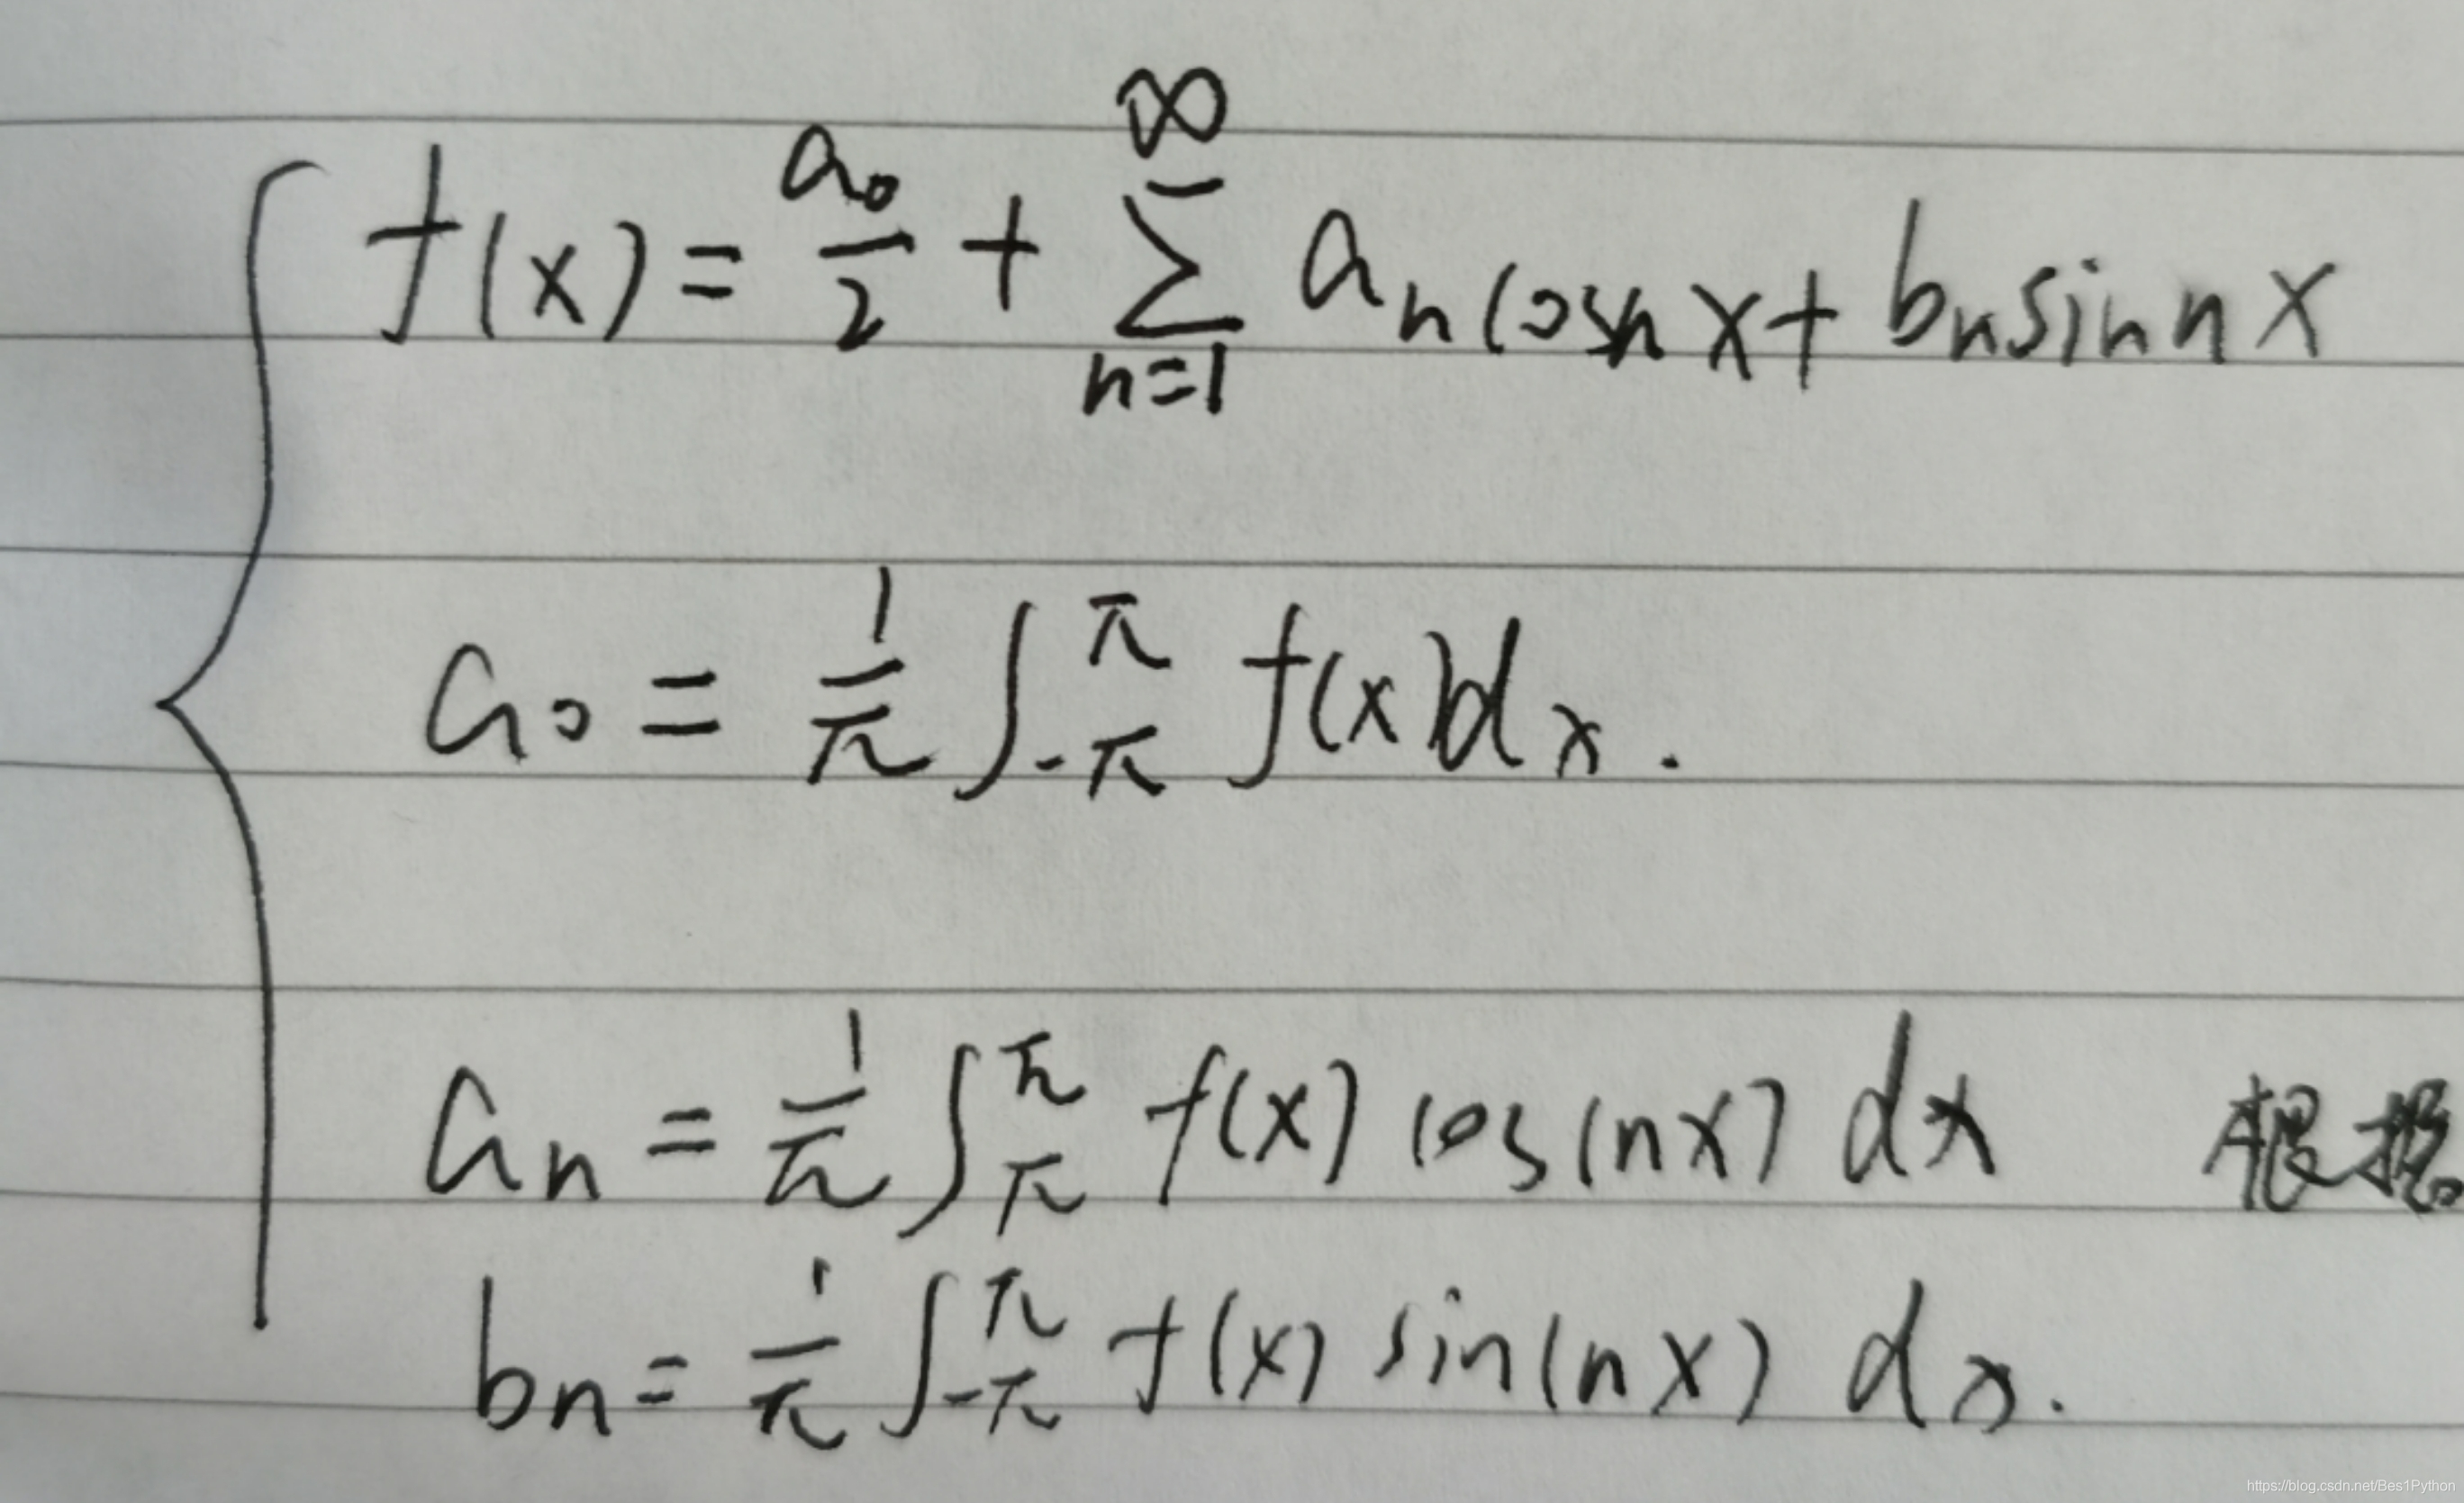 f(x) = a₀/2 + ∑_{n=1}^{∞} aₙ cosnx + bₙ sinnx
a₀ = 1/π ∫_{-π}^{π} f(x)dx.
aₙ = 1/π ∫_{π}^{π} f(x) cos(nx) dx 根据
bₙ = 1/π ∫_{-π}^{π} f(x) sin(nx) dx.
https://blog.csdn.net/Bes1Python